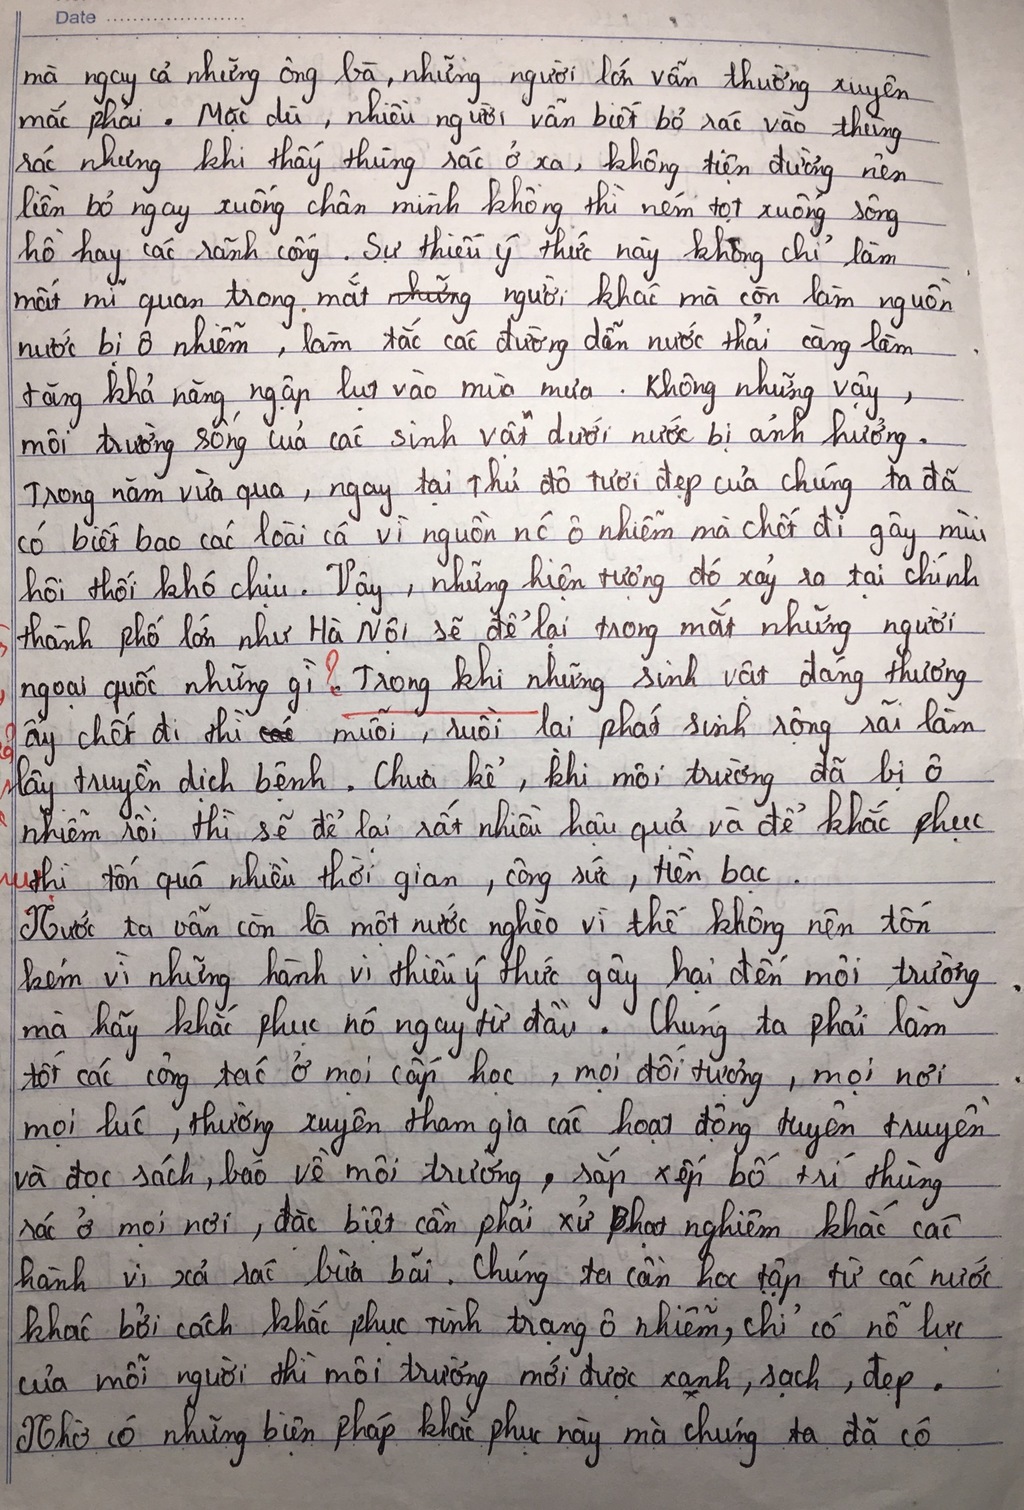 Date
mà ngay cả những ông bà, những người lớn vẫn thường xuyên
mắc phải. Mặc dù, nhiều người vẫn biết bỏ rác vào thùng
rác nhưng khi thấy thùng rác ở xa, không tiện đường nên
liền bỏ ngay xuống chân mình không thì ném tọt xuống sông
hồ hay các rãnh cống. Sự thiếu ý thức này không chỉ làm
mất mĩ quan trong mắt những người khác mà còn làm nguồn
nước bị ô nhiễm, làm tắc các đường dẫn nước thải càng làm
tăng khả năng ngập lụt vào mùa mưa. Không những vậy,
môi trường sống của các sinh vật dưới nước bị ảnh hưởng.
Trong năm vừa qua, ngay tại Thủ đô tươi đẹp của chúng ta đã
có biết bao các loài cá vì nguồn nc ô nhiễm mà chết đi gây mùi
hôi thối khó chịu. Vậy, những hiện tượng đó xảy ra tại chính
thành phố lớn như Hà Nội sẽ để lại trong mắt những người
ngoại quốc những gì? Trong khi những sinh vật đáng thương
ấy chết đi thì các muỗi, ruồi lại phát sinh rộng rãi làm
lây truyền dịch bệnh. Chưa kể, khi môi trường đã bị ô
nhiễm rồi thì sẽ để lại rất nhiều hậu quả và để khắc phục
thì tốn quá nhiều thời gian, công sức, tiền bạc.
Nước ta vẫn còn là một nước nghèo vì thế không nên tốn
kém vì những hành vi thiếu ý thức gây hại đến môi trường
mà hãy khắc phục nó ngay từ đầu. Chúng ta phải làm
tốt các công tác ở mọi cấp học, mọi đối tượng, mọi nơi
mọi lúc, thường xuyên tham gia các hoạt động tuyên truyền
và đọc sách, báo về môi trường, sắp xếp bố trí thùng
rác ở mọi nơi, đặc biệt cần phải xử phạt nghiêm khắc các
hành vi xả rác bừa bãi. Chúng ta cần học tập từ các nước
khác bởi cách khắc phục tình trạng ô nhiễm, chỉ có nỗ lực
của mỗi người thì môi trường mới được xanh, sạch, đẹp.
Nhờ có những biện pháp khắc phục này mà chúng ta đã có